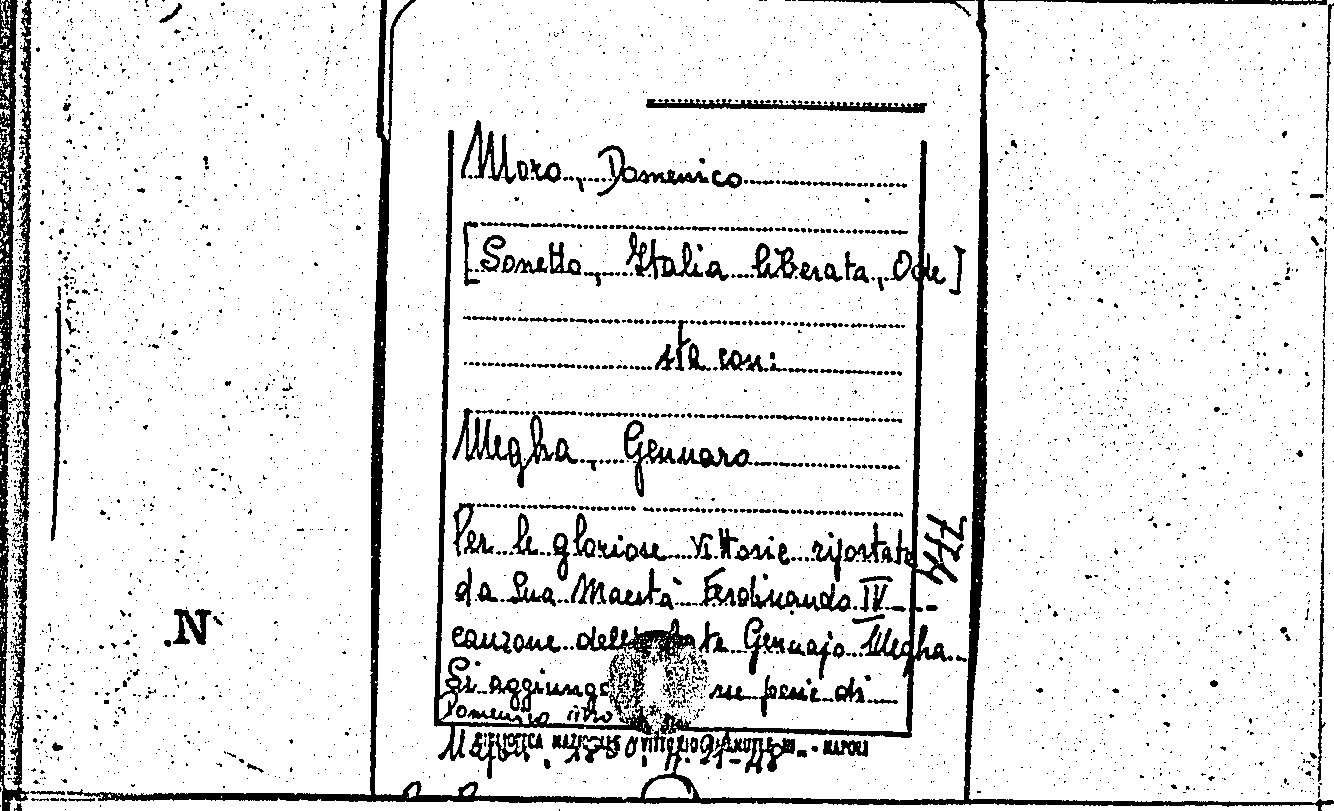 Moro, Domenico
[Sonetto, Italia liberata, Ode]
sta con:
Megha, Gennaro
Per le gloriose vittorie riportate
da Sua Maestà Ferdinando IV---
canzone dell' Gennajo Megha..
Si aggiungo ne poesie di
Domenico
BIBLIOTECA NAZIONALE VITTORIO EMANUELE III - NAPOLI
Napoli. 1800. p. 21-48
774
.N